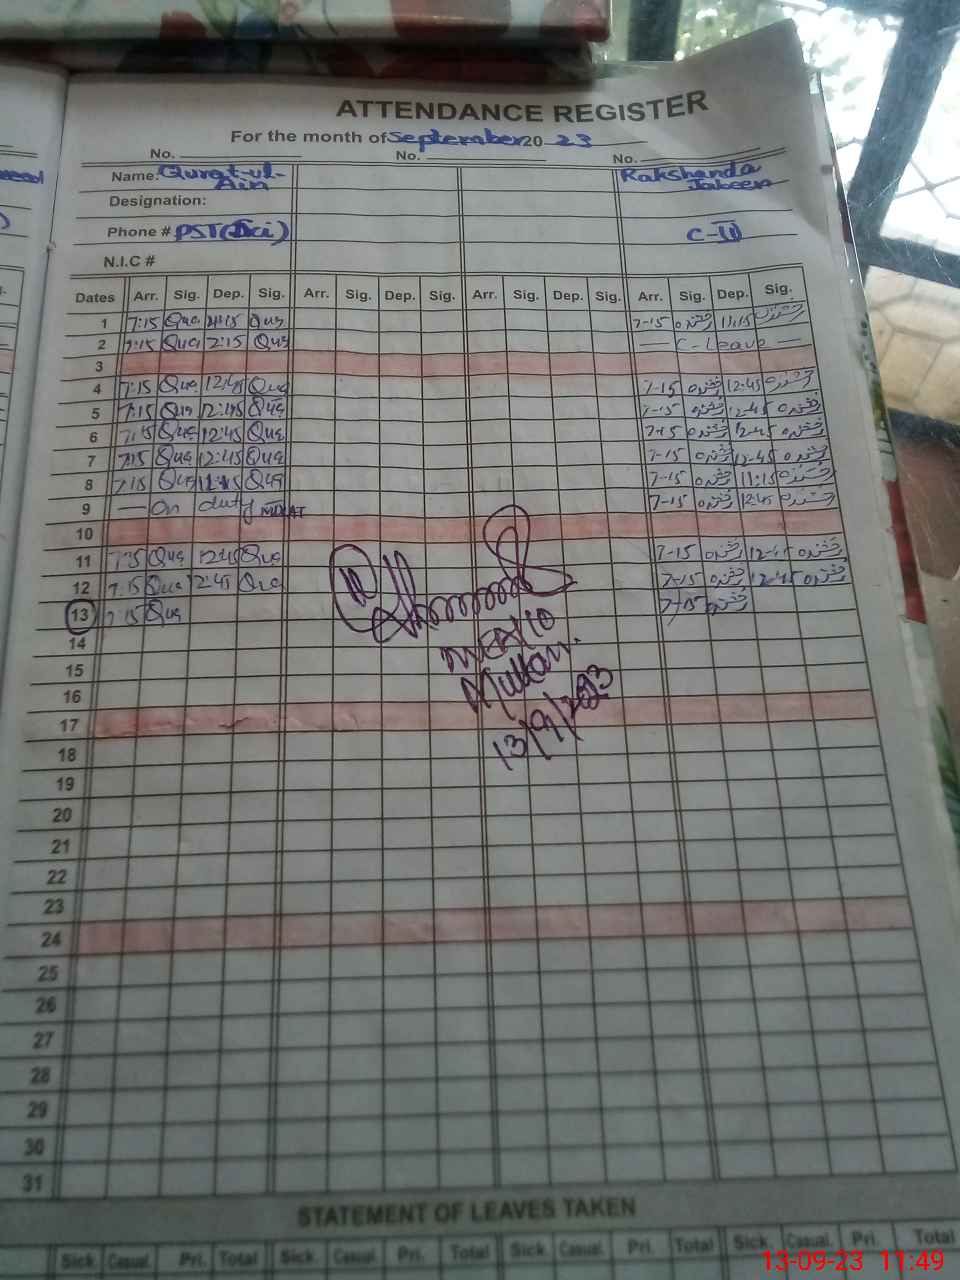 ATTENDANCE REGISTER
For the month of September 20 23
No. No. No.
Name: Qurat-ul-Ain Rakshanda Jabeen
Designation:
Phone # PST(Sci) C-II
N.I.C #
Dates Arr. Sig. Dep. Sig. Arr. Sig. Dep. Sig. Arr. Sig. Dep. Sig. Arr. Sig. Dep. Sig.
1 7:15 Qua Qua 7-15 رخشندہ 11:15 رخشندہ
2 7:15 Qua 2:15 Qua — C-Leave —
3
4 7:15 Qua 12:45 Qua 7-15 رخشندہ 12:45 رخشندہ
5 7:15 Qua 12:45 Qua 7-15 رخشندہ 12-45 رخشندہ
6 7:15 Qua 12:45 Qua 7-15 رخشندہ 12-45 رخشندہ
7 7:15 Qua 12:45 Qua 7-15 رخشندہ 12-45 رخشندہ
8 7:15 Qua Qua 7-15 رخشندہ 11:15 رخشندہ
9 — On duty 7-15 رخشندہ 12:45 رخشندہ
10
11 Qua 12:45 Qua 7-15 رخشندہ 12-45 رخشندہ
12 7:15 Qua 2:45 Qua 7-15 رخشندہ 12-45 رخشندہ
13 7:15 Qua 7-15 رخشندہ
14
15
16
17
18
19
20
21
22
23
24
25
26
27
28
29
30
31
Multan.
13/9/2023
STATEMENT OF LEAVES TAKEN
Sick. Casual. Pri. Total Sick. Casual. Pri. Total Sick. Casual. Pri. Total Sick. Casual. Pri. Total
13-09-23 11:49